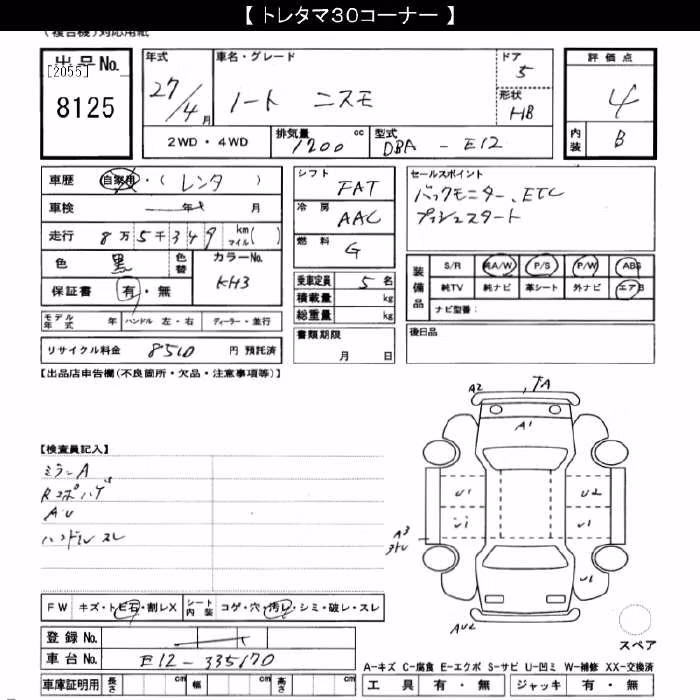 【 トレタマ30コーナー 】
(複合機)対応用紙
出品No.
[2055]
8125
年式
27/4月
車名・グレード
ノート ニスモ
ドア
5
形状
HB
評価点
4
内装
B
2WD・4WD
排気量 cc
1200
型式
DBA - E12
車歴 自家用・( レンタ )
車検 年 月
走行 8万5千349 km マイル( )
色 黒 色替 カラーNo.
KH3
保証書 有・無
モデル年式 年 ハンドル 左・右 ディーラー・並行
リサイクル料金 8510 円 預託済
シフト
FAT
冷房
AAC
燃料
G
乗車定員 5 名
積載量 kg
総重量 kg
書類期限
月 日
セールスポイント
バックモニター、ETC
プッシュスタート
装備品
S/R 純A/W P/S P/W ABS
純TV 純ナビ 革シート 外ナビ エアB
ナビ型番:
後日品
【出品店申告欄(不良箇所・欠品・注意事項等)】
【検査員記入】
ミラーA
Rコボハゲ
AU
ハンドルスレ
A2
A1
U1
U2
U1
U1
A3
U1
AU2
スペア
FW キズ・トビ石・割レX シート内装 コゲ・穴・汚レ・シミ・破レ・スレ
登録No.
車台No. E12-335170
車庫証明用 長さ cm 幅 cm 高さ cm
A-キズ C-腐食 E-エクボ S-サビ U-凹ミ W-補修 XX-交換済
工具 有・無 ジャッキ 有・無